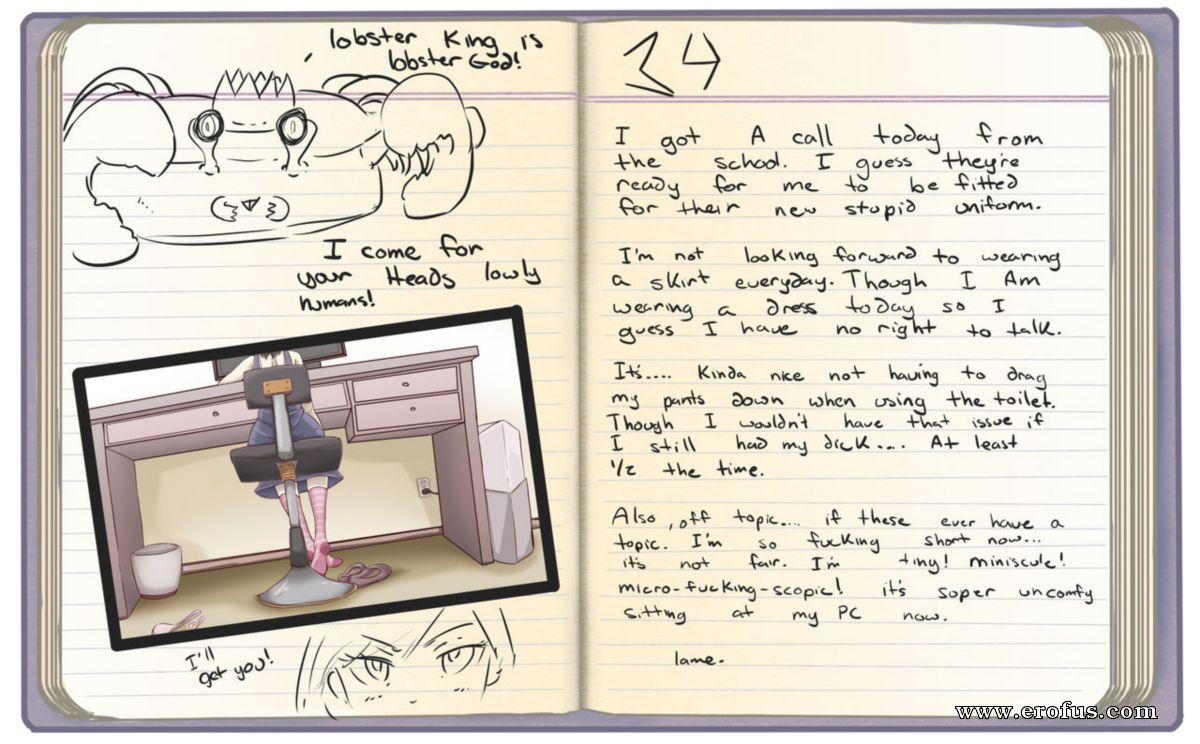 lobster King is
lobster God!
I come for
your Heads lowly
humans!
I'll
get you!
24
I got A call today from
the school. I guess they're
ready for me to be fitted
for their new stupid uniform.
I'm not looking forward to wearing
a skirt everyday. Though I Am
wearing a dress today so I
guess I have no right to talk.
It's.... Kinda nice not having to drag
my pants down when using the toilet.
Though I wouldn't have that issue if
I still had my dick.... At least
1/2 the time.
Also, off topic.... if these ever have a
topic. I'm so fucking short now...
it's not fair. I'm tiny! miniscule!
micro-fucking-scopic! it's super uncomfy
sitting at my PC now.
lame.
www.erofus.com